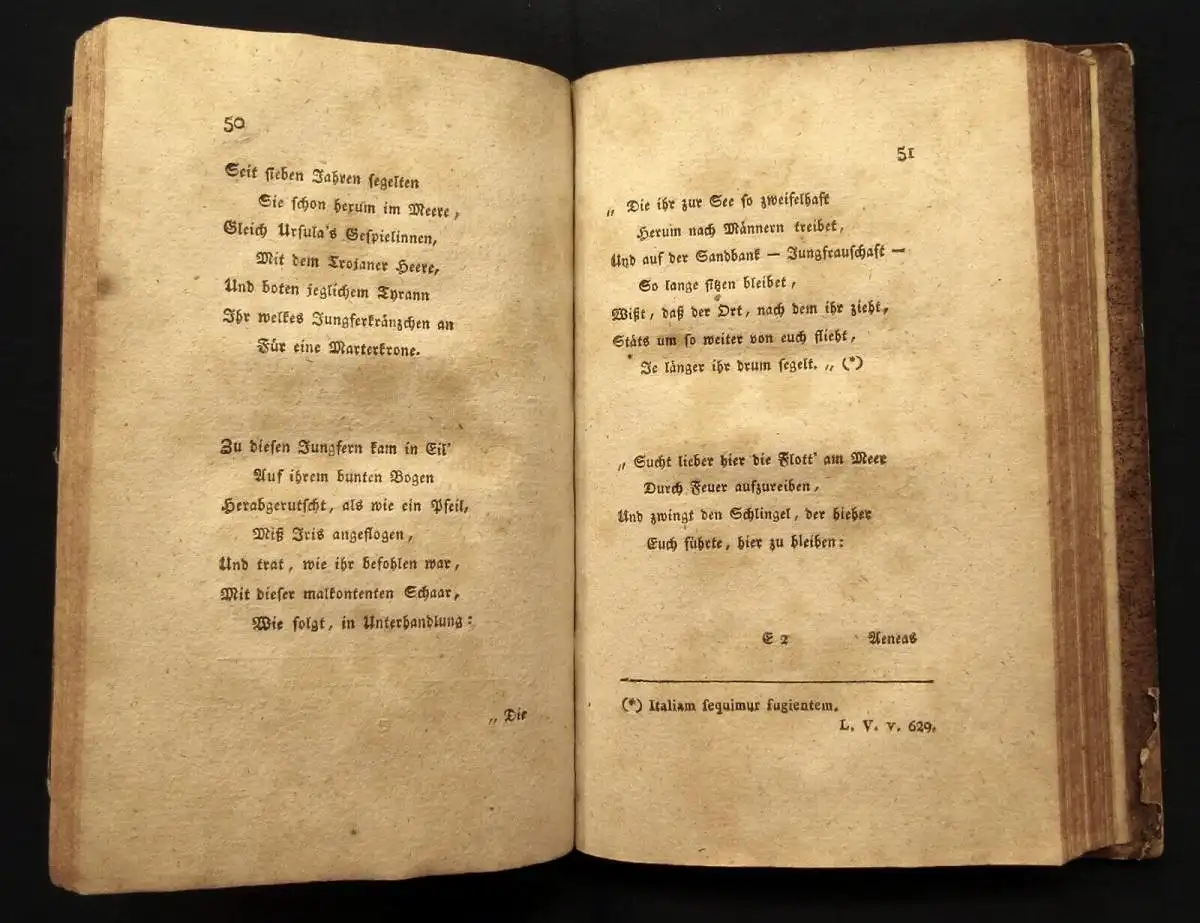 50
Seit sieben Jahren segelten
Sie schon herum im Meere,
Gleich Ursula's Gespielinnen,
Mit dem Trojaner Heere,
Und boten jeglichem Tyrann
Ihr welkes Jungferkränzchen an
Für eine Marterkrone.
Zu diesen Jungfern kam in Eil'
Auf ihrem bunten Bogen
Herabgerutscht, als wie ein Pfeil,
Miß Iris angeflogen,
Und trat, wie ihr befohlen war,
Mit dieser malkontenten Schaar,
Wie folgt, in Unterhandlung:
„Die
51
„Die ihr zur See so zweifelhaft
Herum nach Männern treibet,
Und auf der Sandbank — Jungfrauschaft —
So lange sitzen bleibet,
Wißt, daß der Ort, nach dem ihr zieht,
Stäts um so weiter von euch flieht,
Je länger ihr drum segelt.„ (*)
„Sucht lieber hier die Flott' am Meer
Durch Feuer aufzureiben,
Und zwingt den Schlingel, der hieher
Euch führte, hier zu bleiben:
E 2 Aeneas
(*) Italiam sequimur fugientem.
L. V. v. 629.